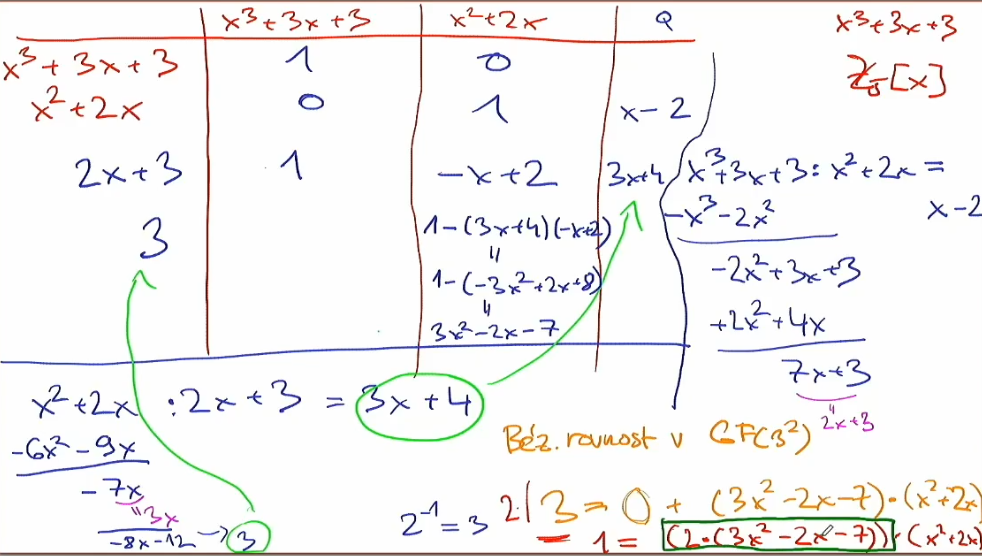 x³+3x+3 x²+2x Q
x³+3x+3 1 0
x²+2x 0 1 x-2
2x+3 1 -x+2 3x+4
3 1-(3x+4)(-x+2)
"
1-(-3x²+2x+8)
"
3x²-2x-7
x³+3x+3
Z₅[x]
x³+3x+3 : x²+2x =
-x³-2x² x-2
-2x²+3x+3
+2x²+4x
7x+3
"
2x+3
x²+2x : 2x+3 = 3x+4
-6x²-9x
-7x
"3x
-8x-12 → 3
2⁻¹=3
Béz. rovnost v GF(3²)
2·| 3 = 0 + (3x²-2x-7)·(x²+2x)
1 = (2·(3x²-2x-7))·(x²+2x)